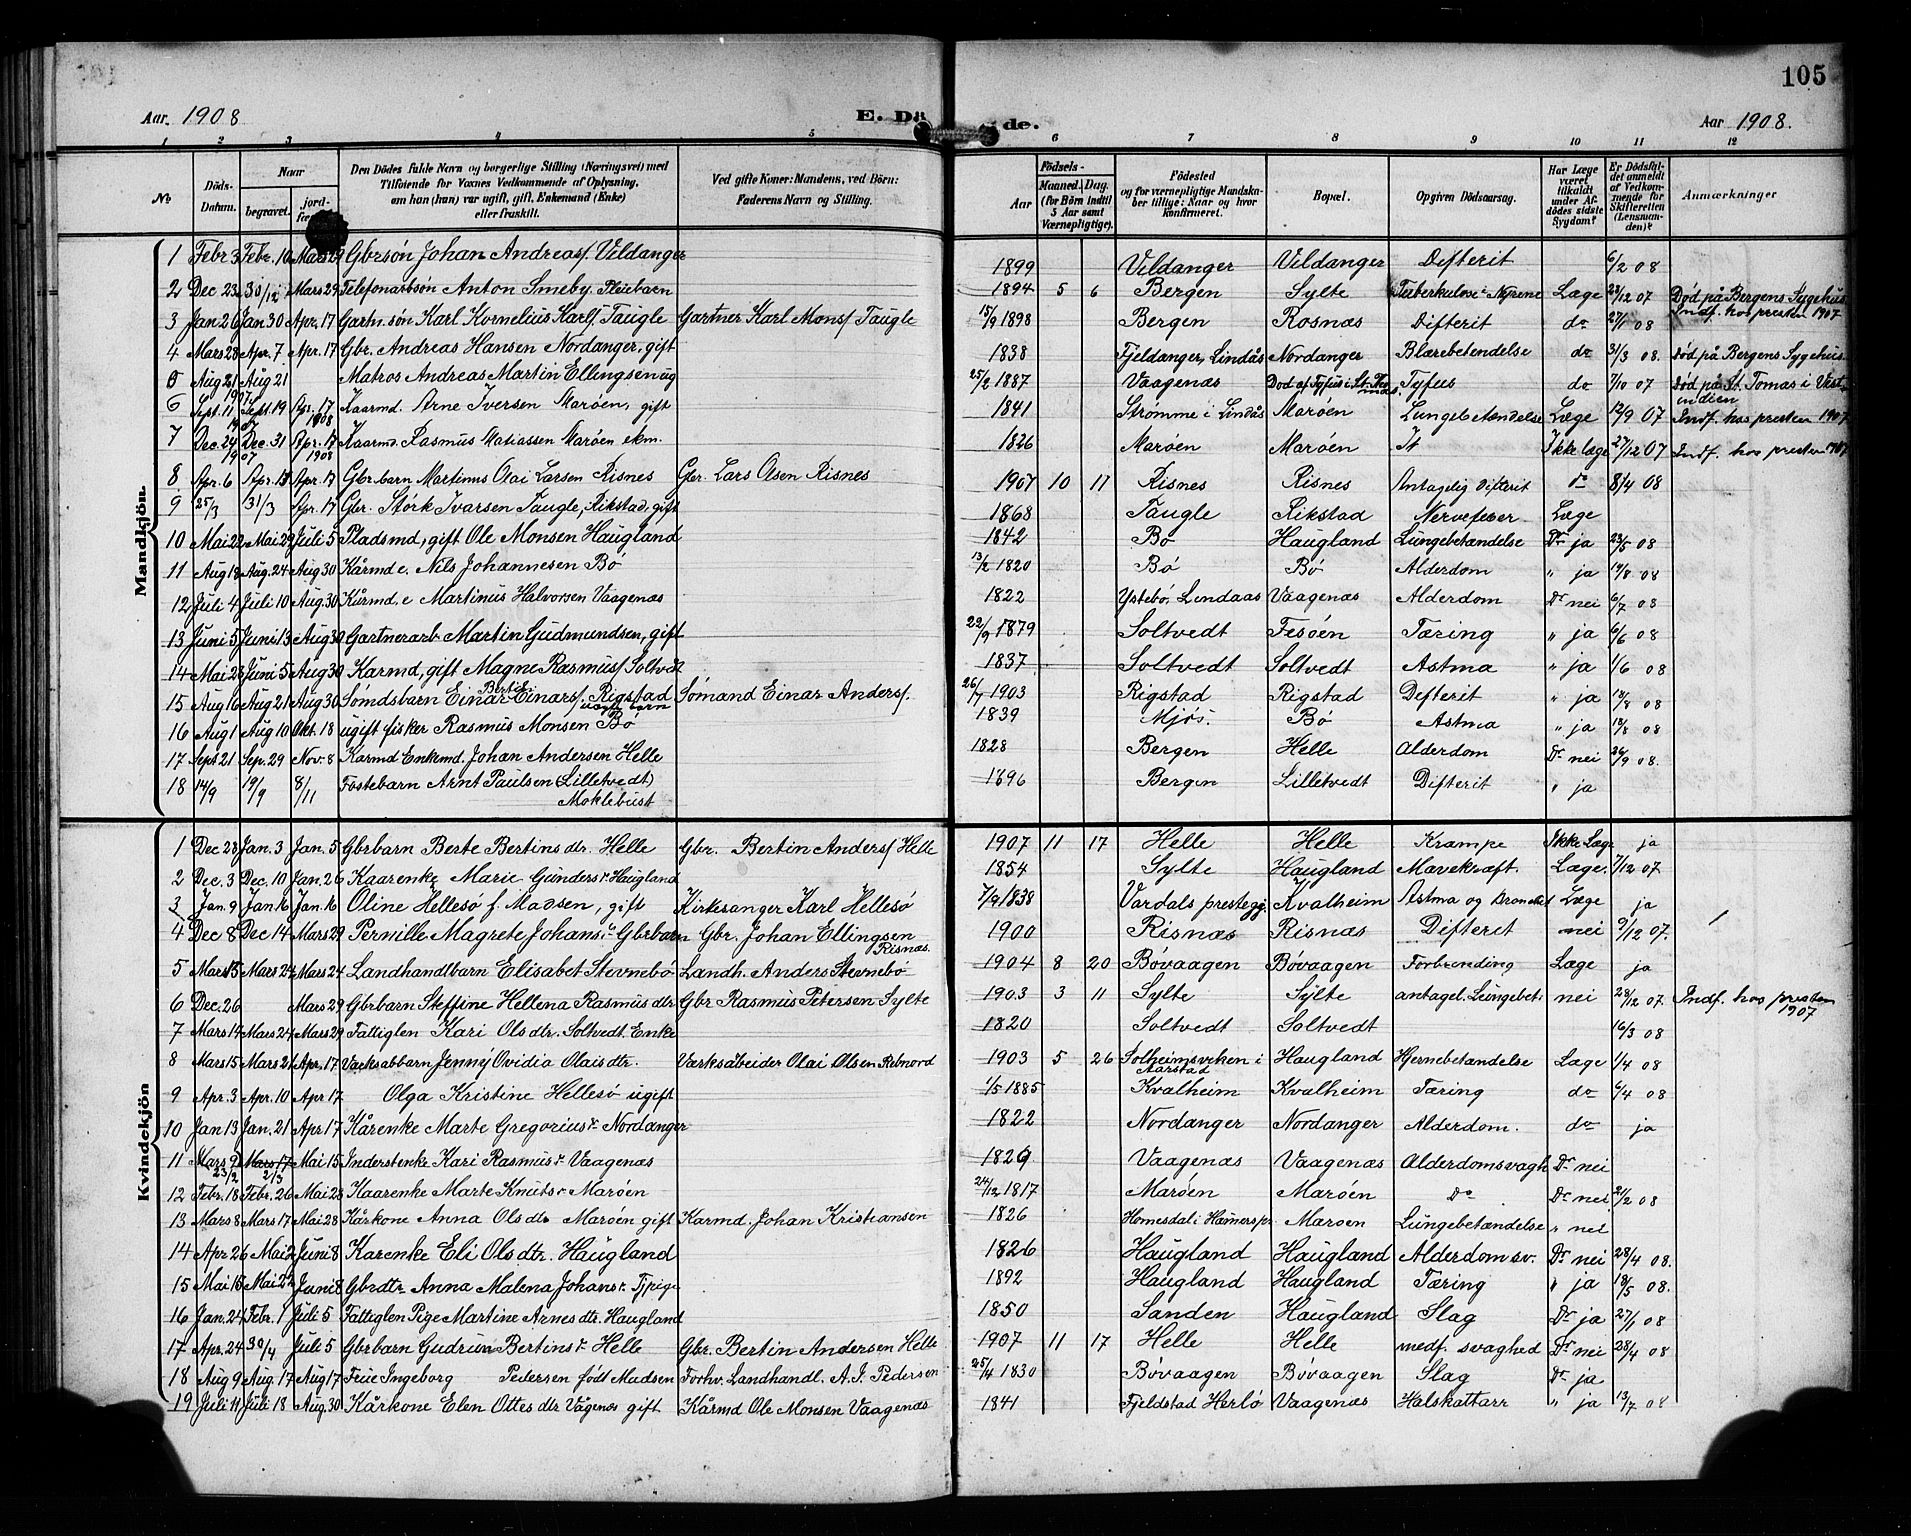 105
Aar. 1908
E. Dö de.
Aar 1908.
1 2 3 4 5 6 7 8 9 10 11 12
No
Döds-Datum.
Naar
begravet.
jord-
Den Dödes fulde Navn og borgerlige Stilling (Næringsvei) med
Tilføiende for Voxnes Vedkommende af Oplysning,
om han (hun) var ugift, gift, Enkemand (Enke)
eller fraskilt.
Ved gifte Koner: Mandens, ved Börn:
Faderens Navn og Stilling.
Födsels-
Aar
Maaned. Dag.
(for Börn indtil
5 Aar samt
Værnepligtige).
Födested
og for værnepligtige Mandska-
ber tillige: Naar og hvor
konfirmeret.
Bopæl.
Opgiven Dödsaarsag.
Har Læge
været
tilkaldt
under Af-
dödes sidste
Sygdom?
Er Dödsfal-
det anmeldt
af Vedkom-
mende for
Skifteretten
(Lensman-
den)?
Anmærkninger
Mandkjön.
1 Febr 3 Febr. 10 Mars 29 Gbrsøn Johan Andreas/ Vildanger 1899 Vildanger Vildanger Difterit 6/2 08
2 Dec 23 30/12 Mars 29 Telefonarbsön Anton Smeby, Pleiebarn 1894 5 6 Bergen Sylte Tuberkulose i Nyrene Læge 28/12 07 Død på Bergens Sygehus Indf. hos presten 1907
3 Jan 26 Jan 30 Apr. 17 Gartn.søn Karl Kornelius Karls/ Taugle Gartner Karl Mons/ Taugle 15/9 1898 Bergen Rosnæs Difterit do 27/1 08
4 Mars 28 Apr. 7 Apr. 17 Gbr. Andreas Hansen Nordanger, gift 1838 Fjeldanger, Lindås Nordanger Blærebetendelse do 31/3 08. Død på Bergens Sygehus
5 Aug 21 1907 Aug 21 Matros Andreas Martin Ellingsen ug 25/2 1887 Vaagenæs Død af Tyfus i St. Thomas. Tyfus do 7/10 07 Død på St. Tomas i Vestindien
6 Sept. 11 1907 Sept 19 Apr. 17 1908 Kaarmd. Arne Iversen Marøen, gift 1841 Strømme i Lindås Marøen Lungebetændelse Læge 12/9 07 Indf. hos presten 1907
7 Dec. 24 1907 Dec. 31 Apr. 17 1908 Kaarmd. Rasmus Matiassen Marøen ekm. 1826 Marøen Marøen Ikke læge 27/12 07 Indf. hos presten 1907
8 Apr. 6 Apr. 13 Apr. 17 Gbr.barn Martinus Olai Larsen Risnes Gbr. Lars Olsen Risnes 1907 10 17 Risnes Risnes Antagelig Difterit do 8/4 08
9 25/3 31/3 Apr. 17 Gbr. Størk Ivarsen Taugle, Rikstad, gift 1868 Taugle Rikstad Nervefeber Læge
10 Mai 22 Mai 29 Juli 5 Pladsmd, gift Ole Monsen Haugland 1842 Bø Haugland Lungebetændelse Dr ja 23/5 08
11 Aug 18 Aug. 24 Aug 30 Kårmd e. Nils Johannesen Bø 13/2 1820 Bø Bø Alderdom " ja 19/8 08
12 Juli 4 Juli 10 Aug. 30 Kårmd. e Martinus Halvorsen Vaagenæs 1822 Ystebø, Lindaas Vaagenæs Alderdom Dr nei 6/7 08
13 Juni 5 Juni 13 Aug 30 Gartnerarb Martin Gudmundsen, gift 22/9 1879 Soltvedt Fesøen Tæring " ja 6/6 08
14 Mai 28 Juni 5 Aug 30 Karmd, gift Magne Rasmus/ Soltvedt 1837 Soltvedt Soltvedt Astma " ja 1/6 08
15 Aug 16 Aug 21 Aug 30 Sømdsbarn Einar Einars/ Rigstad uægte barn Sømand Einar Anders/. 26/7 1903 Rigstad Rigstad Difterit " ja 18/8 08
16 Aug 1 Aug 10 Okt. 18 ugift fisker Rasmus Monsen Bø 1839 Mjøs. Bø Astma " ja 18/8 08
17 Sept 21 Sep. 29 Nov. 8 Karmd Enkemd. Johan Andersen Helle 1828 Bergen Helle Alderdom Dr nei 26/9 08.
18 14/9 19/9 8/11 Fostebarn Arnt Paulsen (Lilletvedt) Moklebust 1896 Bergen Lilletvedt Difterit " ja
Kvindekjön
1 Dec. 28 Jan. 3 Jan. 5 Gbrbarn Berte Bertins dtr. Helle Gbr. Bertin Anders/ Helle 1907 11 17 Helle Helle Krampe Ikke Læge ja
2 Dec. 3 Dec. 10 Jan. 26 Kaarenke Marie Gunders r Haugland 1854 Sylte Haugland Mavekræft. Læge. 7/12 07
3 Jan. 9 Jan 16 Jan. 16 Oline Hellesø f. Madsen, gift Kirkesanger Karl Hellesø 7/9 1838 Vardals prestegj. Kvalheim Astma og Bronchit Læge ja
4 Dec 8 Dec 14 Mars 29 Pernille Magrete Johans. Gbrbarn Gbr. Johan Ellingsen Risnæs. 1900 Risnæs Risnæs Difterit nei 9/12 07.
5 Mars 15 Mars 24 Mars 24 Landhandlbarn Elisabet Stevnebø Landh. Anders Stevnebø 1904 8 20 Bøvaagen Bøvaagen Forbrending Læge ja
6 Dec. 26 Mars 29 Gbrbarn Steffine Hellena Rasmus dtr Gbr Rasmus Petersen Sylte 1903 3 11 Sylte Sylte antagel. Lungebet. nei 28/12 07. Indf. hos presten 1907
7 Mars 14 Mars 24 Mars 29 Fattiglem Kari Ols dtr. Soltvedt. Enke 1820 Soltvedt Soltvedt 16/3 08
8 Mars 15 Mars 21 Apr. 17 Værksabbarn Jenny Ovidia Olais dtr. Værksabeider Olai Olsen Rebnord 1903 5 26 Solheimsviken i Aarstad Haugland Hjernebetændelse Læge 1/4 08
9 Apr. 3 Apr. 10 Apr 17 Olga Kristine Hellesø ugift 1/5 1885 Kvalheim Kvalheim Tæring do 6/4 08
10 Jan 13 Jan. 21 Apr 17 Kårenke Marte Gregorius r Nordanger 1822 Nordanger Nordanger Alderdom. do ja
11 Mars 9 Mars 17 Mai 15 Inderstenke Kari Rasmus r Vaagenæs 1829 Vaagenæs Vaagenæs Alderdomsvagh Dr nei
12 23/12 Febr. 18 2/3 Febr. 26 Mai 28 Kaarenke Marte Knuts r Marøen 24/12 1817 Marøen Marøen Do Dr nei 21/2 08
13 Mars 8 Mars 17 Mai 28 Kårkone Anna Ols dtr Marøen gift Karmd. Johan Kristiansen 1826 Homesdal i Hamers pr. Marøen Lungebetændelse " nei
14 Apr 26 Mai 2 Juni 8 Karenke Eli Ols dtr. Haugland 1826 Haugland Haugland Alderdomsv. Dr nei 28/4 08.
15 Mai 16 Mai 22 Juni 8 Gbrdtr Anna Malena Johans r. Tjpige 1892 Haugland Haugland Tæring " ja 18/5 08.
16 Jan. 24 Febr. 1 Juli 5 Fattiglem Pige Martine Arnes dtr. Haugland 1850 Sanden Haugland Slag Dr ja 27/1 08
17 Apr. 24 30/4 Juli 5 Gbrbarn Gudrun Bertins r Helle Gbr. Bertin Andersen Helle 1907 11 17 Helle Helle medf. svaghed Dr nei 28/4 08
18 Aug 9 Aug. 17 Aug 17 Frue Ingeborg Pedersen født Madsen Forhv. Landhandl. A. J. Pedersen 25/4 1830 Bøvaagen Bøvaagen Slag Dr ja
19 Juli 11 Juli 18 Aug. 30 Kårkone Elen Ottes dtr Vågenes gift Kårmd Ole Monsen Vaagenæs 1841 Fjeldstad Herlø Vaagenæs Halskattarr " ja 13/7 08